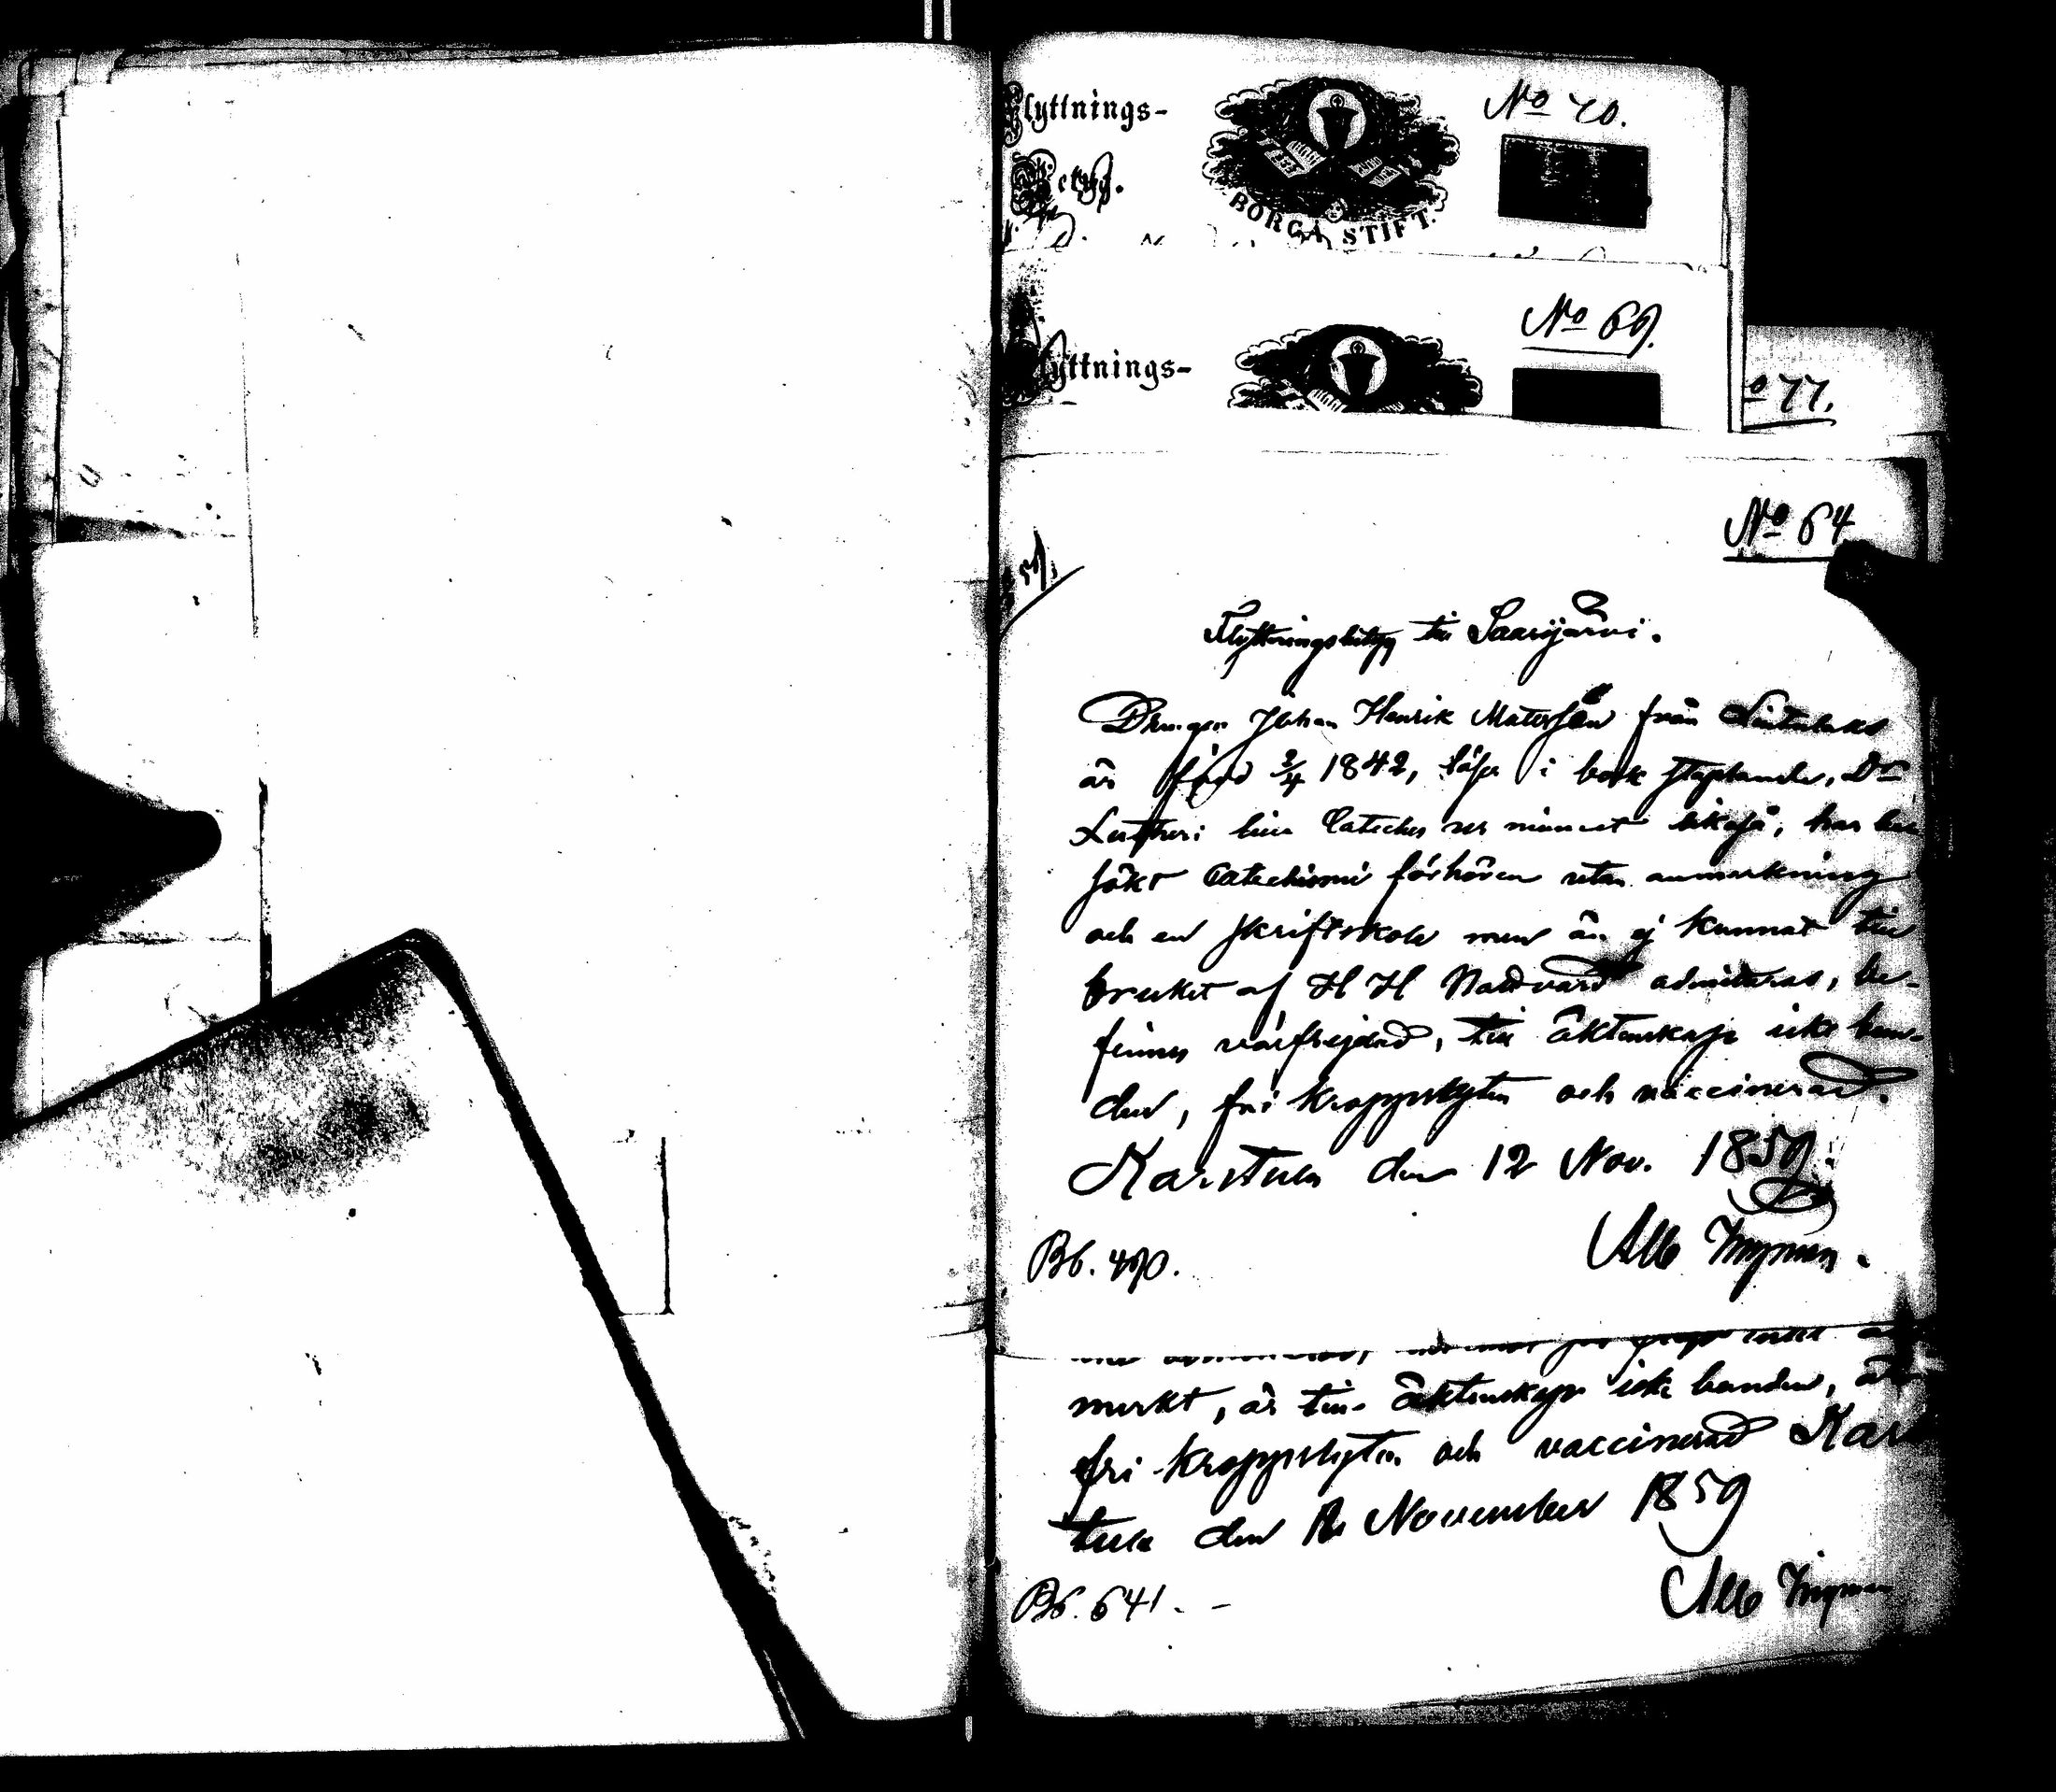 Flyttnings-
Betyg.
BORGÅ STIFT.
No 70.
Flyttnings-
No 69.
o 77.
No 64
Flyttningsbetyg till Saarijärvi.
Drengen Johan Henrik Matersson från
är född 2/4 1842, läser i bok staplande, Dr
Lutheri lilla Cateches ur minnet likaså, har be-
sökt Catechismi förhören utan anmärkning
och en skriftskola men än ej kunnat till
bruket af H H Nattvard admitteras, be-
finnes välfrejdad, till äktenskap icke bun-
den, fri kroppslyten och vaccinerad.
Karstula den 12 Nov. 1859.
Alb
Bb. 490.
märkt, är till äktenskap icke bunden, är
fri kroppslyten och vaccinerad Kars
tula den November 1859
Bb. 641. -
Alb